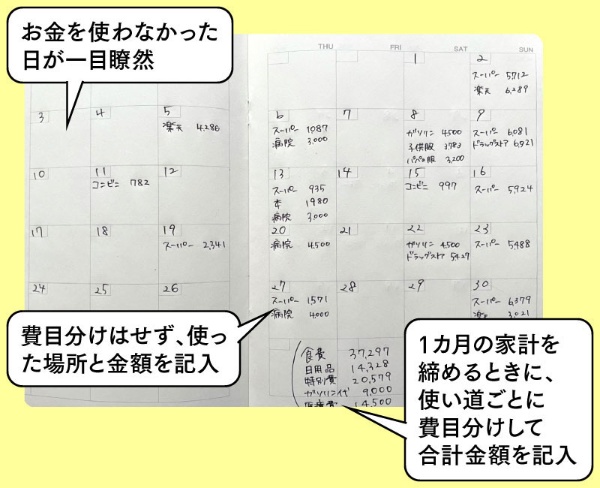 お金を使わなかった
日が一目瞭然
THU FRI SAT SUN
1 2
スーパー 5712
楽天 6,289
3 4 5
楽天 4,286
6 7 8 9
スーパー 1087 ガソリン 4500 スーパー 6,081
病院 3,000 子供服 3783 ドラッグストア 6,921
パパの服 3,200
10 11 12
コンビニ 782
13 14 15 16
スーパー 935 コンビニ 997 スーパー 5924
本 1980
病院 3,000
17 18 19
スーパー 2,341
20 21 22 23
病院 4,500 ガソリン 4,500 スーパー 5488
ドラッグストア 5427
24 25 26
27 28 29 30
スーパー 1571 スーパー 6,379
病院 4,000 楽 3,021
費目分けはせず、使っ
た場所と金額を記入
食費 37,297
日用品 14,328
特別費 20,579
ガソリン代 9,000
医療費 14,500
1カ月の家計を
締めるときに、
使い道ごとに
費目分けして
合計金額を記入